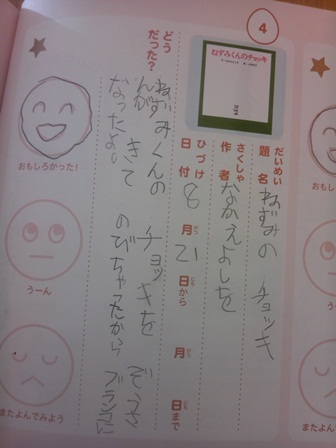 4
ねずみくんのチョッキ
だいめい
題名 ねずみの チョッキ
さくしゃ
作者 なかえよしを
ひづけ
日付 8月21日から 月 日まで
どうだった？
ねずみくんの チョッキを ぞうさ
んが きて のびちゃたから ブランコに
なったよ。
おもしろかった！
うーん
またよんでみよう